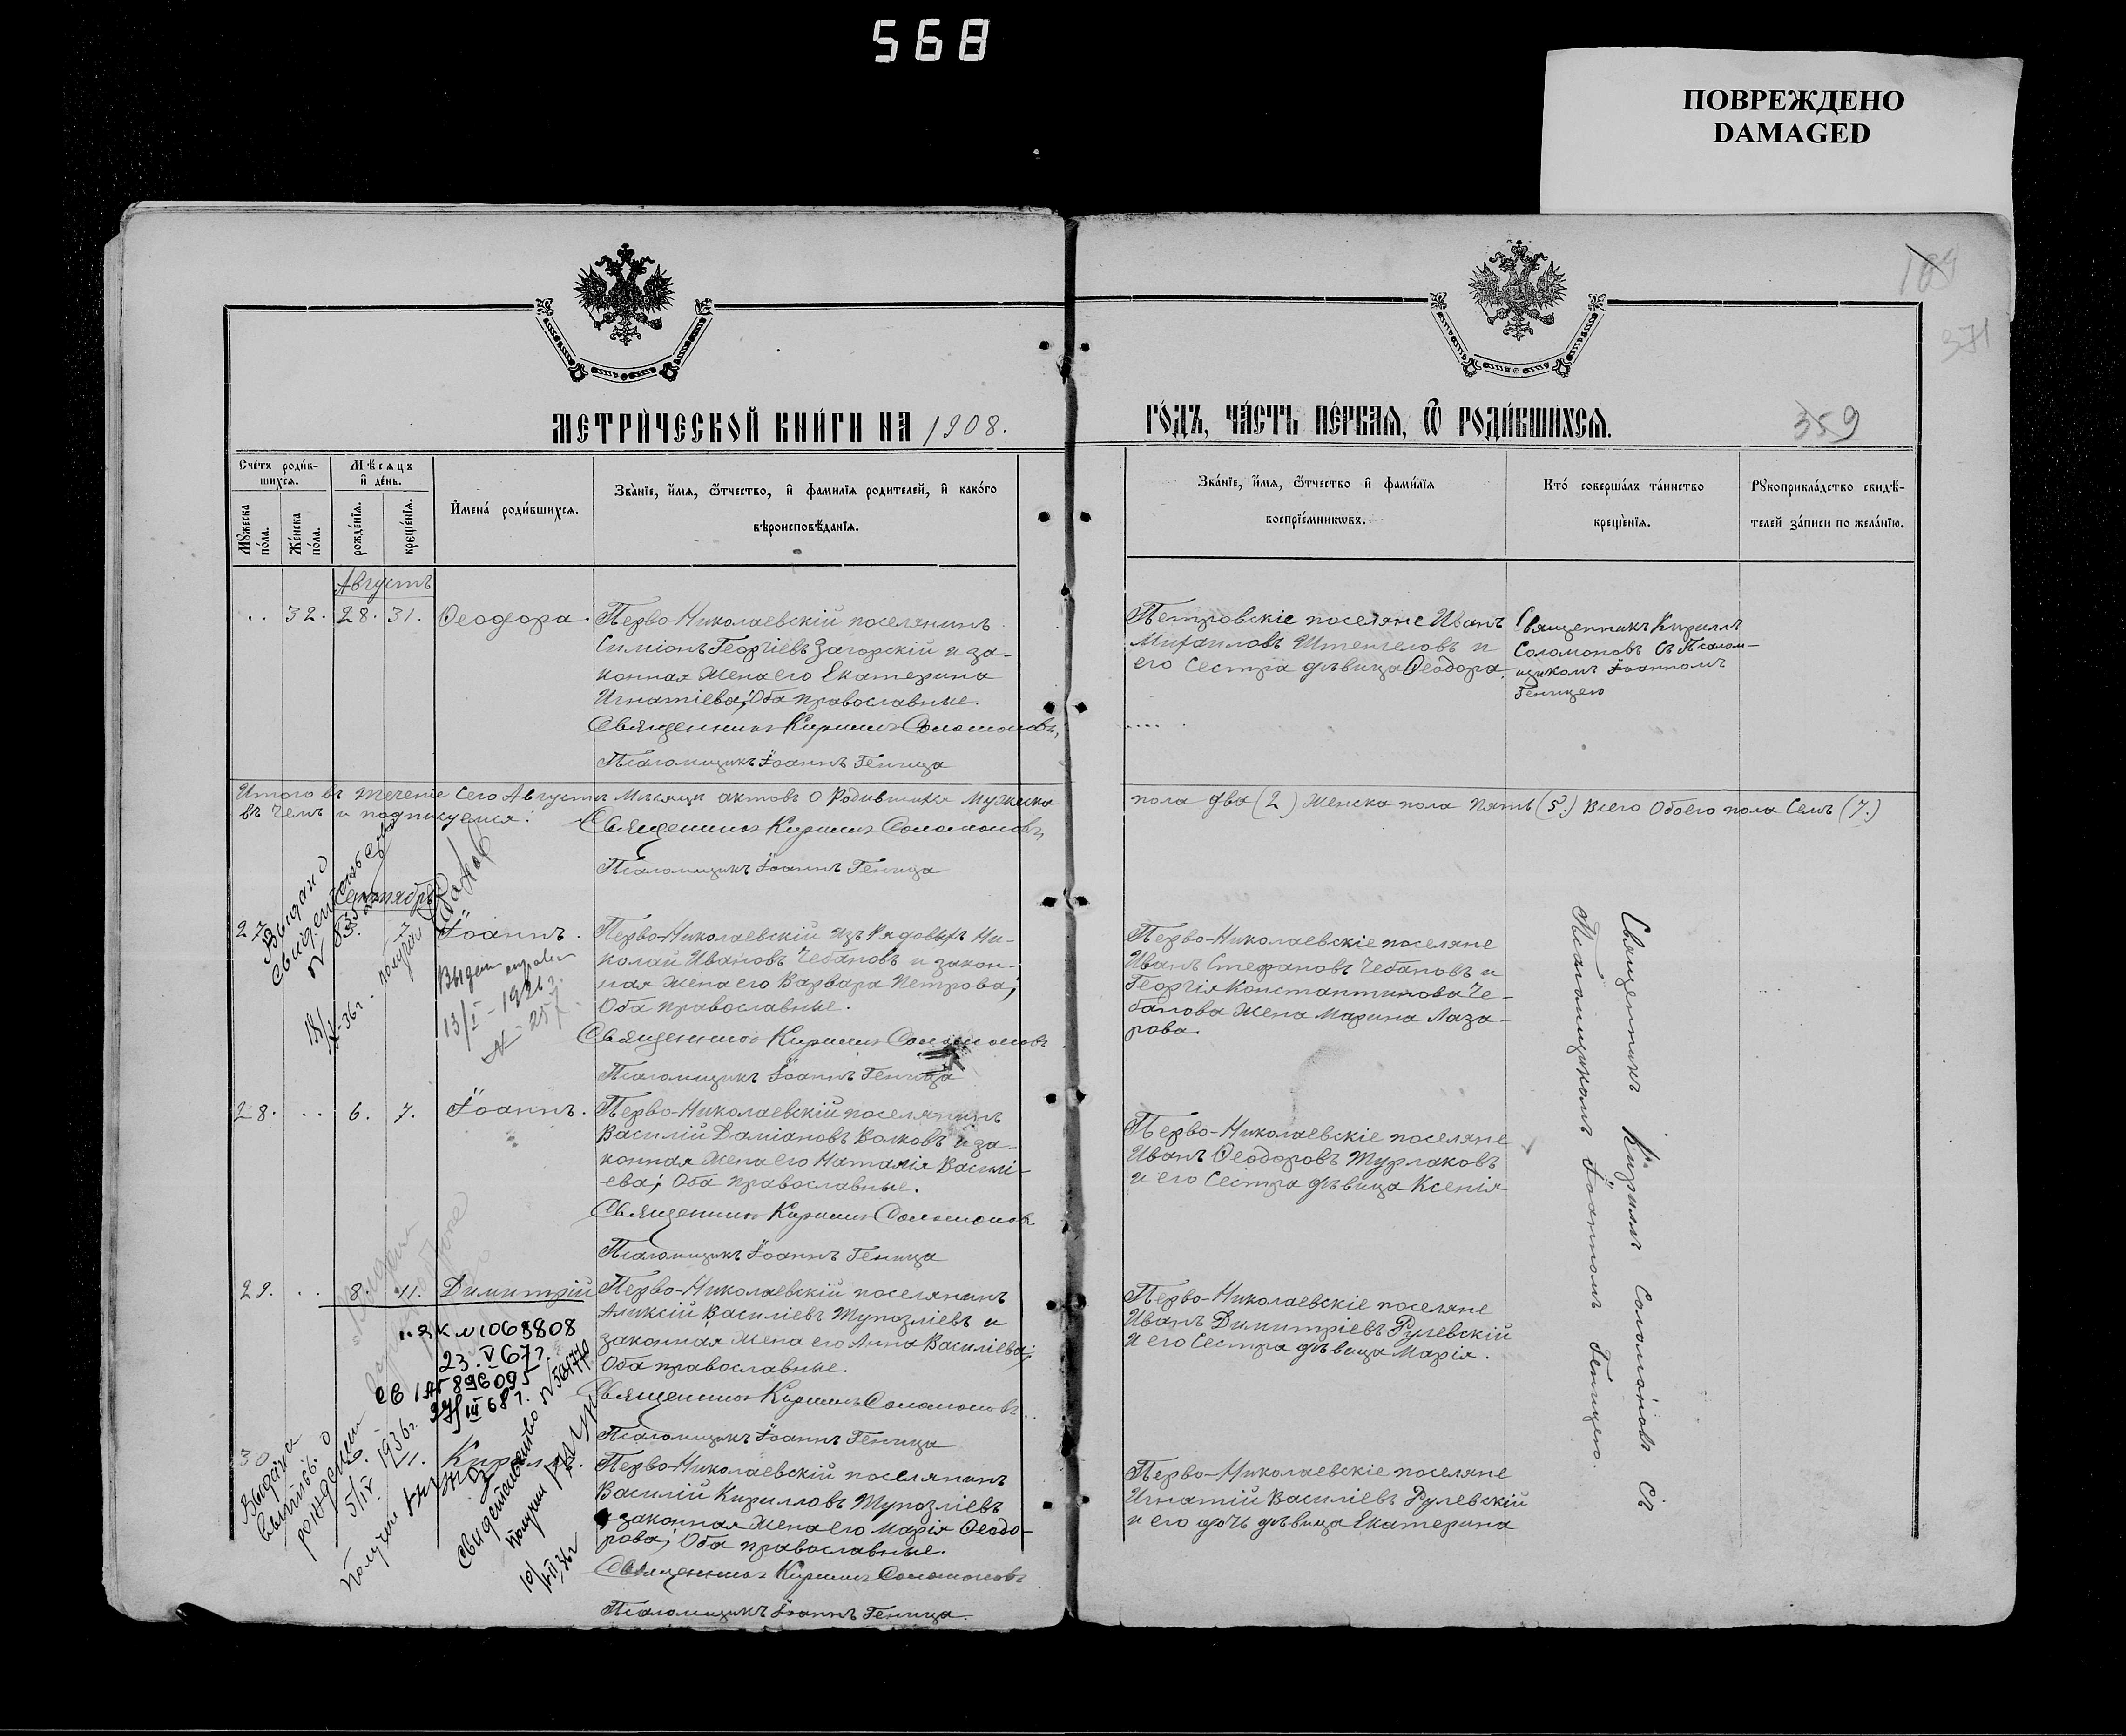 568
ПОВРЕЖДЕНО
DAMAGED
169
371
359
МЕТРИ́ЧЕСКОЙ КНИ́ГИ НА 1908.
ГО́ДЪ, ЧА́СТЬ ПЕ́РВАЯ, Ѿ РОДИ́ВШИХСЯ.
Сче́тъ роди́в-
шихся.
Мѣ́сяцъ
и де́нь.
Мꙋ́жеска
по́ла.
Же́нска
по́ла.
рожде́нїя.
креще́нїя.
И҆мена̀ роди́вшихся.
Зва́нїе, и҆́мя, ѻ҆́тчество, и҆ фами́лїя роди́телей, и҆ како́гѡ
вѣроисповѣ́данїя.
Зва́нїе, и҆́мя, ѻ҆́тчество и҆ фами́лїя
воспрїе́мникѡвъ.
Кто̀ соверша́лъ та́инство
креще́нїя.
Рꙋкоприкла́дство свидѣ́-
телей за́писи по жела́нїю.
Августъ
32. 28. 31. Ѳеодора.
Перво-Николаевскій поселянинъ
Симіонъ Георгіевъ Загорскій и за-
конная жена его Екатерина
Игнатіева; Оба православные.
Священникъ Кириллъ Соломоновъ,
Псаломщикъ Іоаннъ Геница
Петровскіе поселяне Иванъ
Михаиловъ Штенгеловъ и
его Сестра дѣвица Ѳеодора.
Священникъ Кириллъ
Соломоновъ съ Псалом-
щикомъ Іоанномъ
Геницею
Итого въ теченіе сего Августъ Мѣсяца актовъ о родившихся Мужеска
пола два (2) Женска пола пять (5.) Всего Обоего пола Семь (7.)
въ чемъ и подписуемся:
Священникъ Кириллъ Соломоновъ,
Псаломщикъ Іоаннъ Геница
Сентябрь
27. 7 Іоаннъ.
Перво-Николаевскій изъ Рядовыхъ Ни-
колай Ивановъ Чебановъ и закон-
ная жена его Варвара Петрова;
Оба православные.
Священникъ Кириллъ Соломоновъ
Псаломщикъ Іоаннъ Геница
Перво-Николаевскіе поселяне
Иванъ Стефановъ Чебановъ и
Георгія Константинова Че-
банова жена Марина Лаза-
рова.
Выдано
свидетельство
N 835
18/IX-36г. получил Чебанов
Выдан
13/I-1926г.
N-257
28. 6. 7. Іоаннъ.
Перво-Николаевскій поселянинъ
Василій Даміановъ Волковъ и за-
конная жена его Наталія Василі-
ева; Оба православные.
Священникъ Кириллъ Соломоновъ
Псаломщикъ Іоаннъ Геница
Перво-Николаевскіе поселяне
Иванъ Ѳеодоровъ Турлаковъ
и его Сестра дѣвица Ксенія
29. 8. 11. Димитрій
Перво-Николаевскій поселянинъ
Аликсій Василіевъ Тупозліевъ и
законная жена его Анна Василіева;
Оба православные.
Священникъ Кириллъ Соломоновъ
Псаломщикъ Іоаннъ Геница
Перво-Николаевскіе поселяне
Иванъ Димитріевъ Рулевскій
и его Сестра дѣвица Марія.
I-ЯК N1069808
23.V 67г.
СВ I АГ 896095
29/III 68г.
30. 11. Кириллъ.
Перво-Николаевскій поселянинъ
Василій Кирилловъ Тупозліевъ
и законная жена его Марія Ѳеодо-
рова; Оба православные.
Священникъ Кириллъ Соломоновъ
Псаломщикъ Іоаннъ Геница.
Перво-Николаевскіе поселяне
Игнатій Василіевъ Рулевскій
и его дочь дѣвица Екатерина
Выдано
о
рождении
1936г.
Получил
Свидетельство
получил
10/VII 36г
Священникъ Кириллъ Соломоновъ съ
Псаломщикомъ Іоанномъ Геницею.